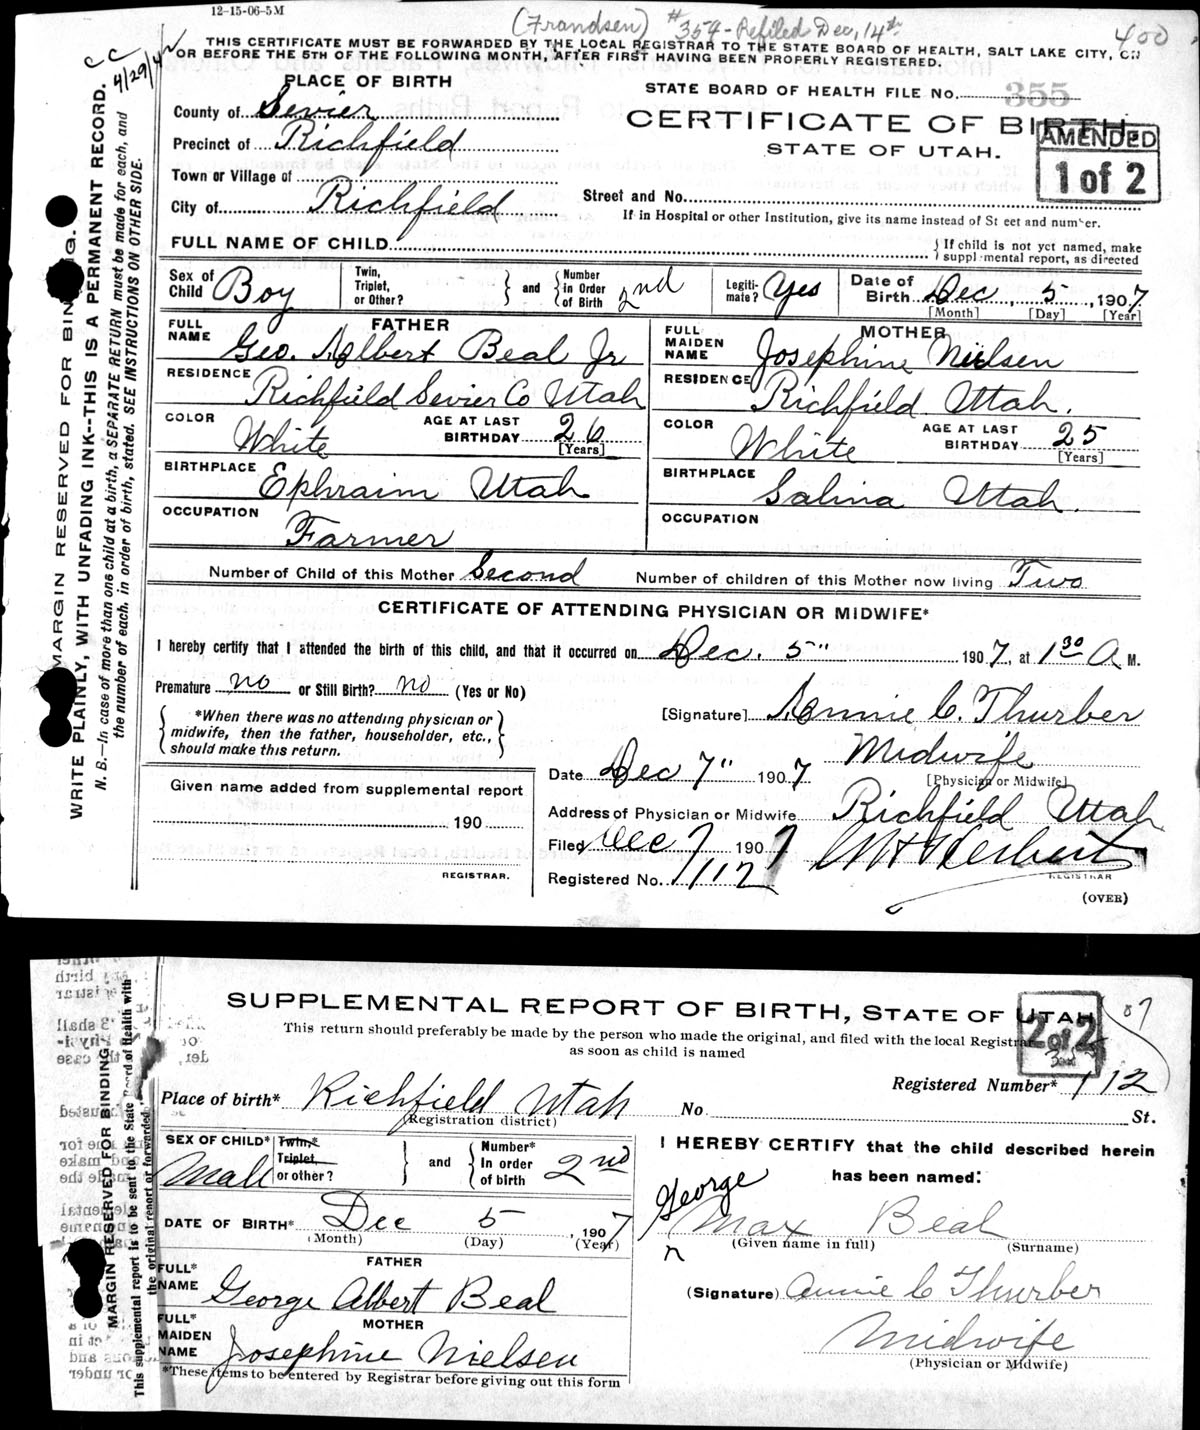 12-15-06-5M
(Frandsen) #354-Refiled Dec, 14th
400
THIS CERTIFICATE MUST BE FORWARDED BY THE LOCAL REGISTRAR TO THE STATE BOARD OF HEALTH, SALT LAKE CITY, ON
OR BEFORE THE 5TH OF THE FOLLOWING MONTH, AFTER FIRST HAVING BEEN PROPERLY REGISTERED.
CC
4/29/4
MARGIN RESERVED FOR BINDING.
WRITE PLAINLY, WITH UNFADING INK--THIS IS A PERMANENT RECORD.
N. B.—In case of more than one child at a birth, a SEPARATE RETURN must be made for each, and
the number of each, in order of birth, stated. SEE INSTRUCTIONS ON OTHER SIDE.
PLACE OF BIRTH
County of Sevier
Precinct of Richfield
Town or Village of
City of Richfield
STATE BOARD OF HEALTH FILE No. 355
CERTIFICATE OF BIRTH
STATE OF UTAH.
AMENDED
1 of 2
Street and No.
If in Hospital or other Institution, give its name instead of St eet and number.
FULL NAME OF CHILD
If child is not yet named, make
suppl mental report, as directed
Sex of Child Boy
Twin, Triplet, or Other?
and
Number in Order of Birth 2nd
Legiti-mate? Yes
Date of Birth Dec, 5, 1907
[Month] [Day] [Year]
FATHER
FULL NAME Geo. Albert Beal Jr
RESIDENCE Richfield Sevier Co Utah
COLOR White
AGE AT LAST BIRTHDAY 26
[Years]
BIRTHPLACE Ephraim Utah
OCCUPATION Farmer
MOTHER
FULL MAIDEN NAME Josephine Nielsen
RESIDENCE Richfield Utah.
COLOR White
AGE AT LAST BIRTHDAY 25
[Years]
BIRTHPLACE Salina Utah.
OCCUPATION
Number of Child of this Mother Second Number of children of this Mother now living Two
CERTIFICATE OF ATTENDING PHYSICIAN OR MIDWIFE*
I hereby certify that I attended the birth of this child, and that it occurred on Dec. 5" 1907, at 1 30 A M.
Premature no or Still Birth? no (Yes or No)
*When there was no attending physician or
midwife, then the father, householder, etc.,
should make this return.
[Signature] Annie C. Thurber
Midwife
[Physician or Midwife]
Date Dec 7" 1907
Given name added from supplemental report
190
REGISTRAR.
Address of Physician or Midwife Richfield Utah
Filed Dec 7 1907
REGISTRAR
Registered No. 112
(OVER)
SUPPLEMENTAL REPORT OF BIRTH, STATE OF UTAH
2 of 2
07
This return should preferably be made by the person who made the original, and filed with the local Registrar
as soon as child is named
MARGIN RESERVED FOR BINDING
This supplemental report is to be sent to the State Board of Health with
the original report or forwarded
Registered Number* 112
Place of birth* Richfield Utah No St.
(Registration district)
SEX OF CHILD* Male
Twin,* Triplet, or other?
and
Number* In order of birth 2nd
DATE OF BIRTH* Dec 5, 1907
(Month) (Day) (Year)
FATHER
FULL* NAME George Albert Beal
MOTHER
FULL* MAIDEN NAME Josephine Nielsen
*These items to be entered by Registrar before giving out this form
I HEREBY CERTIFY that the child described herein
has been named:
George
Max Beal
(Given name in full) (Surname)
n
(Signature) Annie C Thurber
Midwife
(Physician or Midwife)